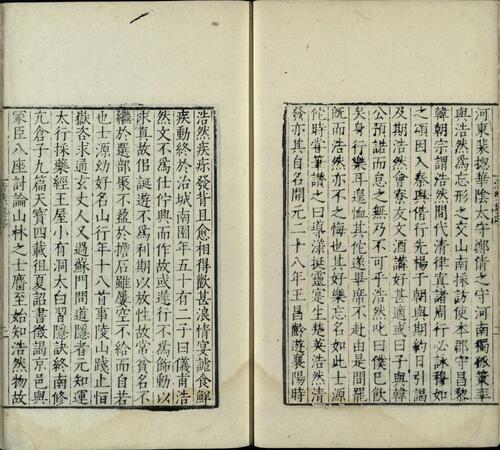 河東裴摠華陰太守鄭倩之守河南獨孤策率
與浩然爲忘形之交山南採訪使本郡守昌黎
韓朝宗謂浩然間代清律寘諸周行必詠穆如
之頌因入秦與偕行先楊于朝與期約日引謁
及期浩然會寮友文酒講好甚適或曰子與韓
公預諾而怠之無乃不可乎浩然叱曰僕已飲
矣身行樂耳遑恤其佗遂畢席不赴由是間罷
既而浩然亦不之悔也其好樂忘名如此士源
佗時嘗筆讚之曰導漾挺靈寔生楚英浩然清
發亦其自名開元二十八年王昌齡遊襄陽時
浩然疾疹發背且愈相得歡甚浪情宴謔食鮮
疾動終於冶城南園年五十有二子曰儀甫浩
然文不爲仕佇興而作故或遲行不爲飾動以
求真故似誕遊不爲利期以放性故常貧名不
繼於選部聚不盈於擔石雖屢空不給而自若
也士源幼好名山行年十八首事陵山踐止恒
嶽咨求通玄丈人又過蘇門問道隱者元知運
太行採藥經王屋小有洞太白習隱訣終南修
亢倉子九篇天寶四載徂夏詔書徵謁京邑與
冢臣八座討論山林之士麕至始知浩然物故